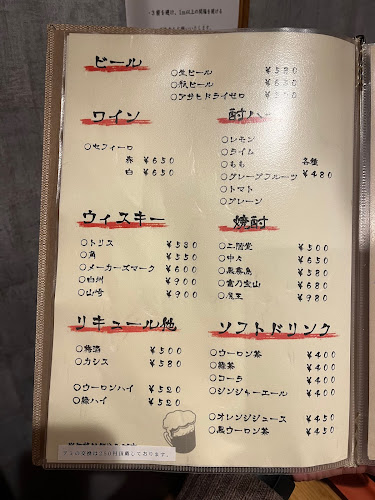 ビール
○生ビール ¥580
○瓶ビール ¥650
○アサヒドライゼロ
ワイン
○セフィーロ
赤 ¥650
白 ¥650
酎ハイ
○レモン
○ライム
○もも
○グレープフルーツ
○トマト
○プレーン
各種
¥480
ウィスキー
○トリス ¥530
○角 ¥550
○メーカーズマーク ¥600
○白州 ¥900
○山崎 ¥900
焼酎
○二階堂 ¥500
○中々 ¥650
○黒霧島 ¥580
○富乃宝山 ¥680
○魔王 ¥980
リキュール他
○梅酒 ¥500
○カシス ¥580
○ウーロンハイ ¥520
○緑ハイ ¥520
ソフトドリンク
○ウーロン茶 ¥400
○緑茶 ¥400
○コーラ ¥400
○ジンジャーエール ¥400
○オレンジジュース ¥450
○黒ウーロン茶 ¥450